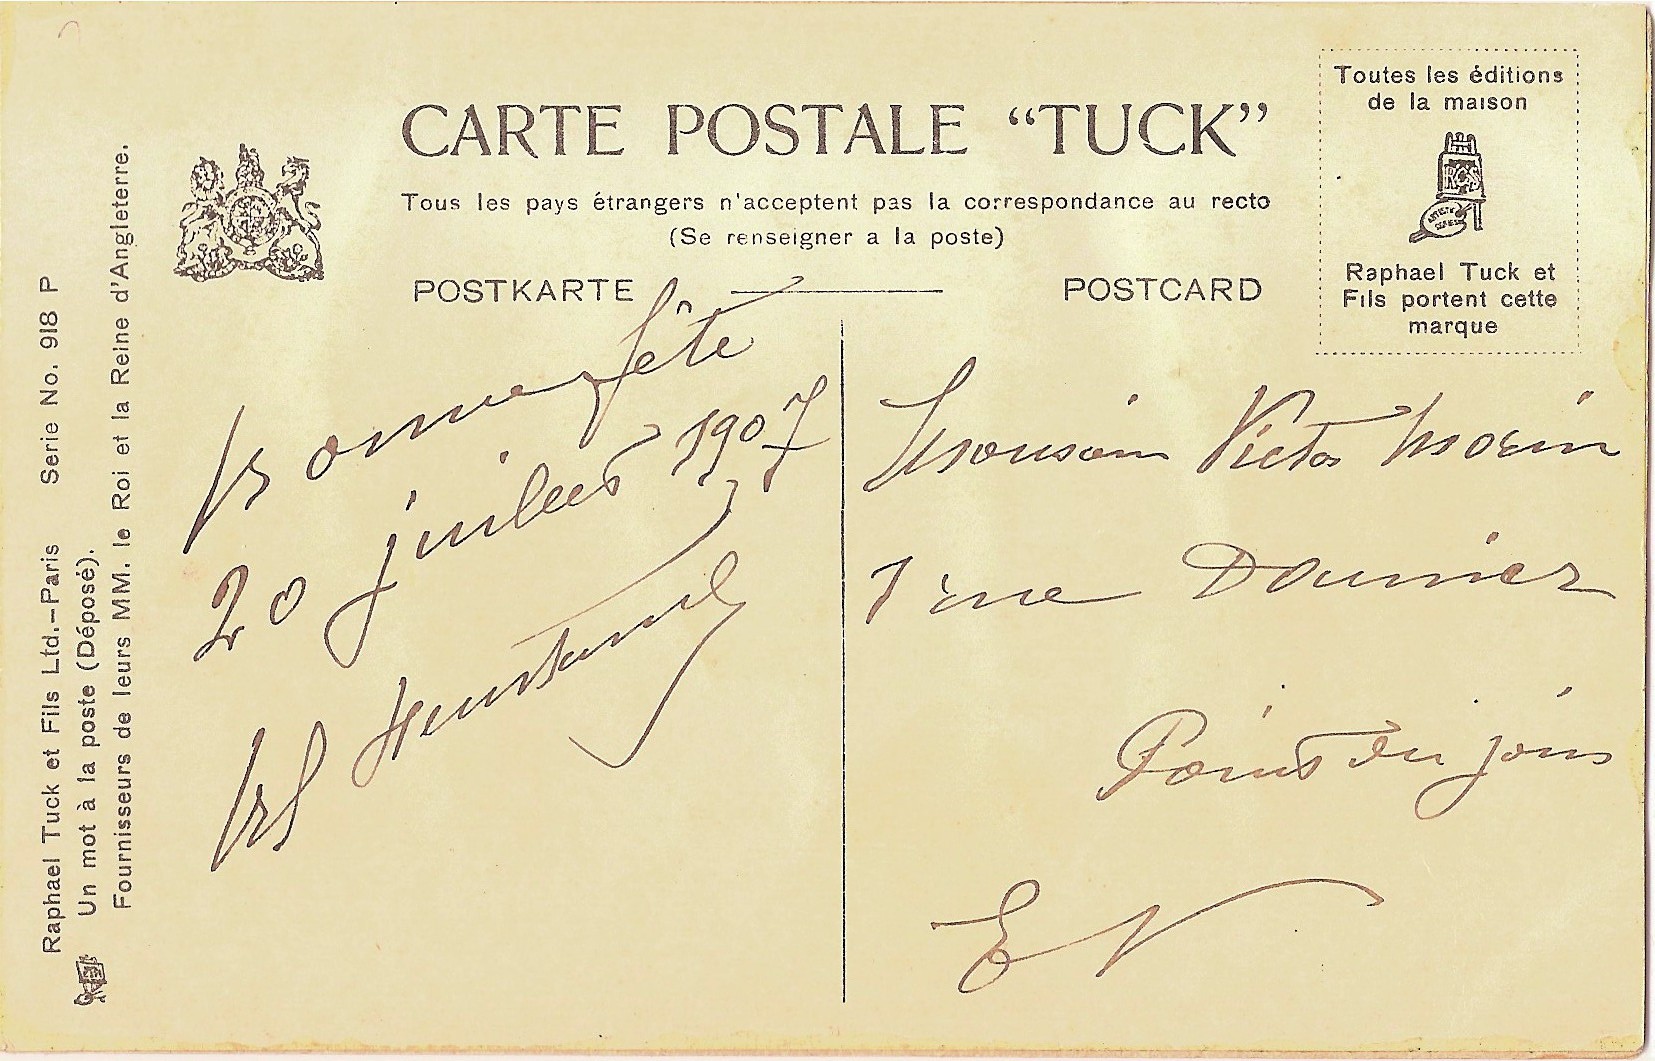 CARTE POSTALE “TUCK”
Tous les pays étrangers n'acceptent pas la correspondance au recto
(Se renseigner a la poste)
POSTKARTE
POSTCARD
Toutes les éditions
de la maison
Raphael Tuck et
Fils portent cette
marque
Raphael Tuck et Fils Ltd.–Paris Serie No. 918 P
Un mot à la poste (Déposé).
Fournisseurs de leurs MM. le Roi et la Reine d'Angleterre.
Bonne fête
20 juillet 1907
Monsieur Victor Morin
rue Daumier
Point du jour
E V